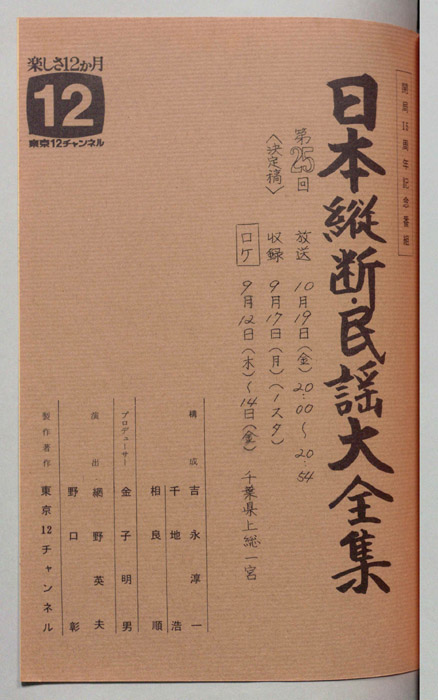 開局15周年記念番組
日本縦断・民謡大全集
第25回
〈決定稿〉
放送 10月19日(金)20:00〜20:54
収録 9月17日(月)(1スタ)
ロケ 9月12日(水)〜14日(金) 千葉県上総一宮
構成 吉永淳一
千地浩
相良順
プロデューサー 金子明男
演出 網野英夫
野口彰
製作著作 東京12チャンネル
楽しさ12か月
12
東京12チャンネル